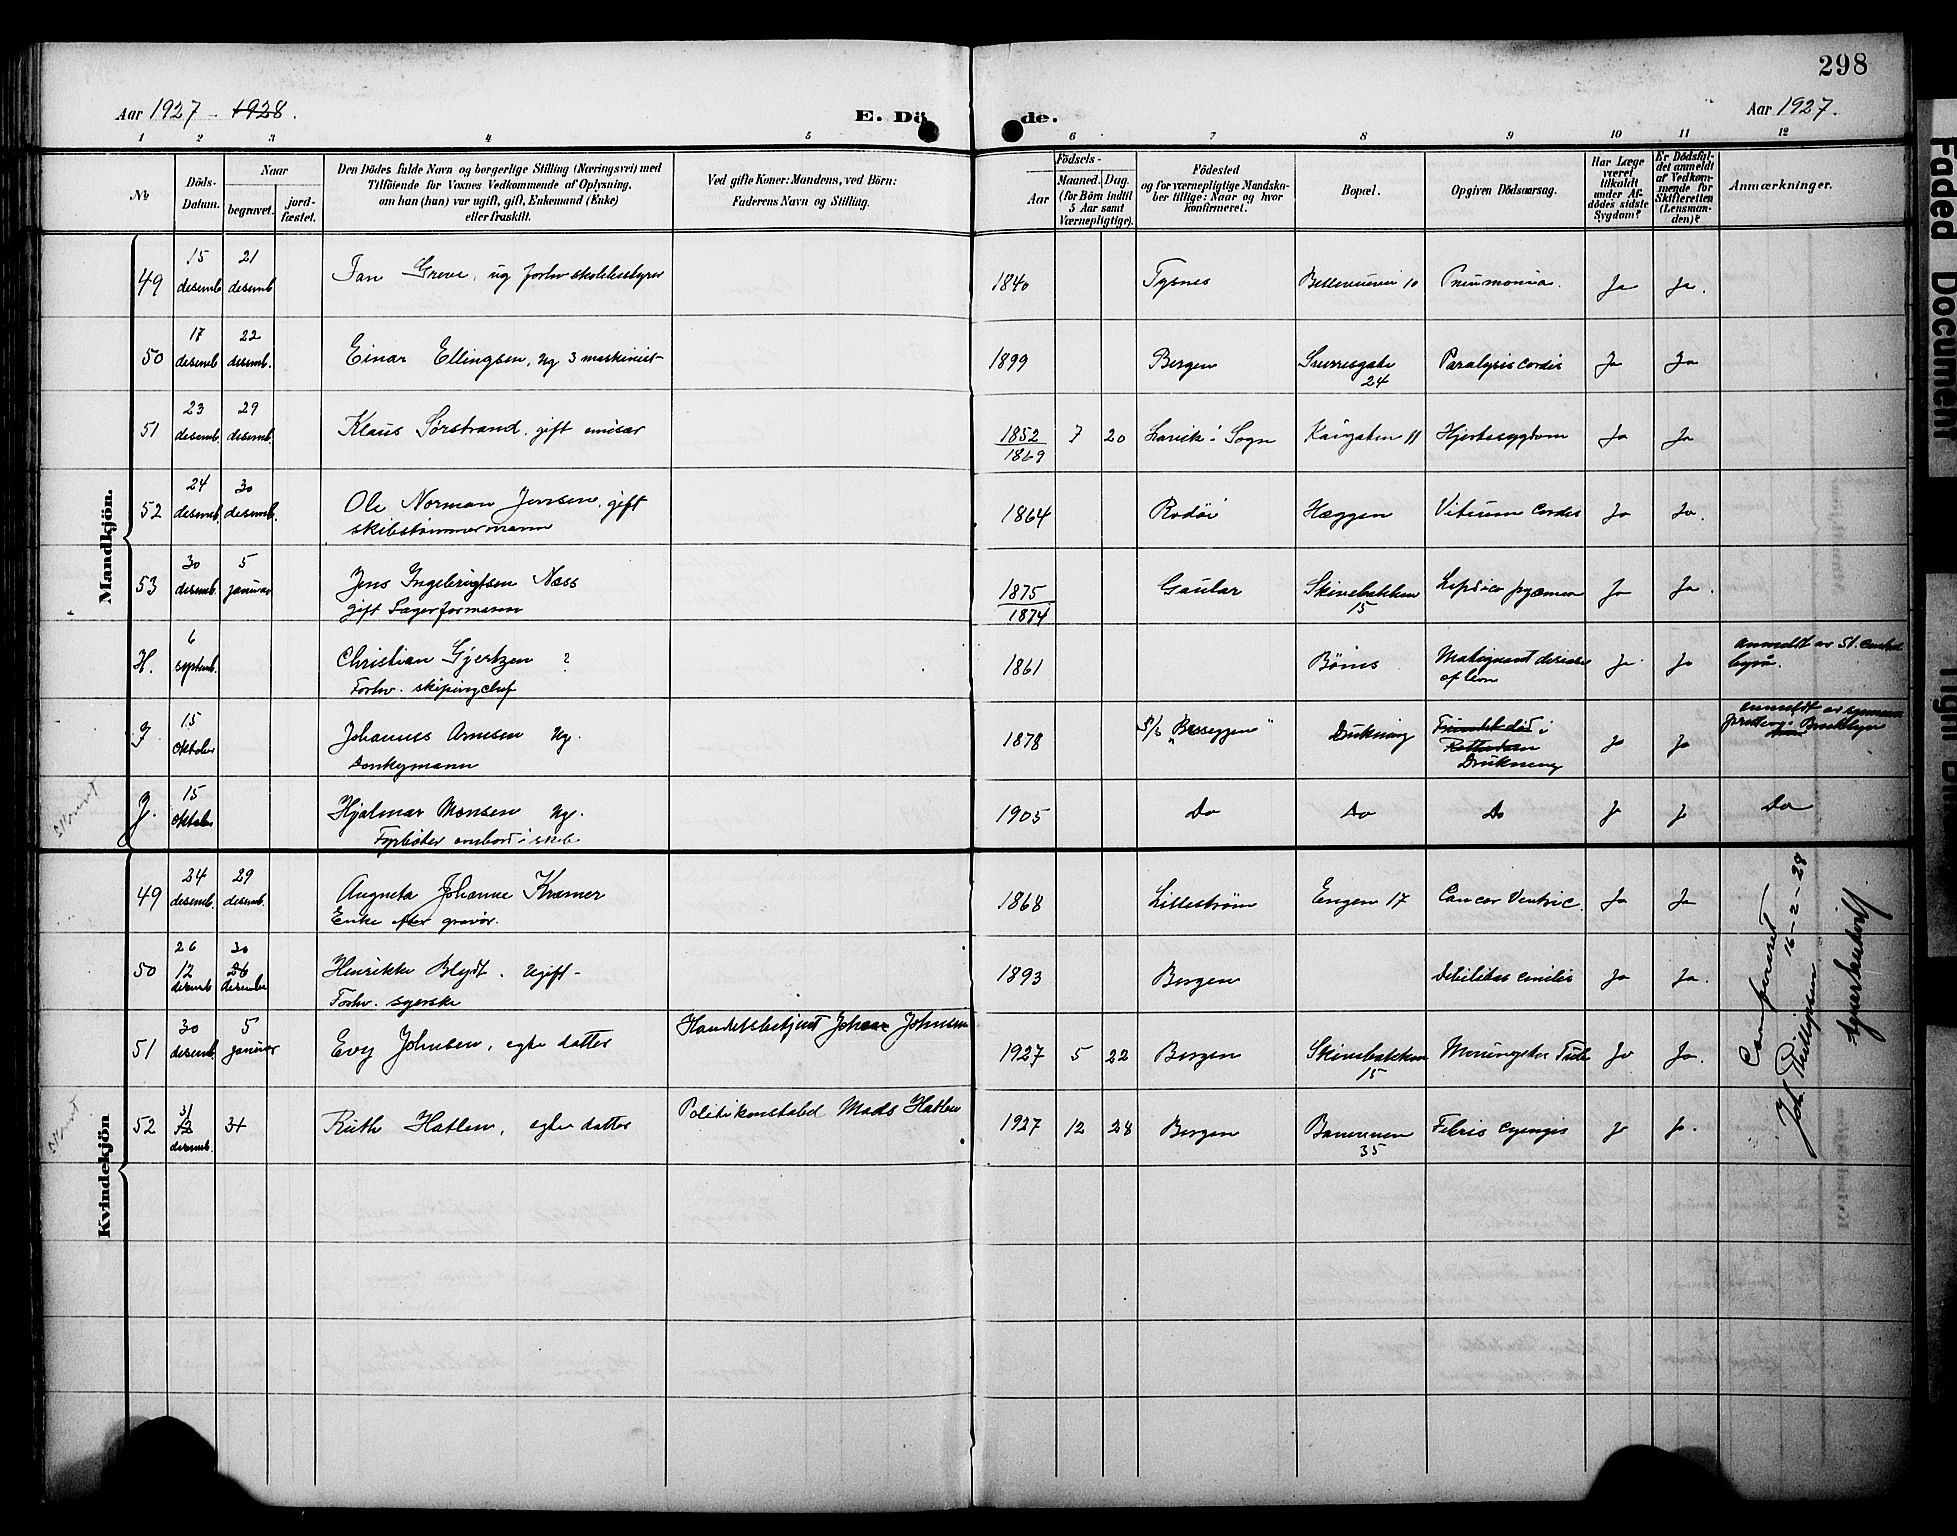 298
Aar 1927 - 1928.
E. Dö de.
Aar 1927.
1 2 3 4 5 6 7 8 9 10 11 12
No
Döds-Datum.
Naar
begravet.
jord-fæstet.
Den Dödes fulde Navn og borgerlige Stilling (Næringsvei) med
Tilföiende for Voxnes Vedkommende af Oplysning,
om han (hun) var ugift, gift, Enkemand (Enke)
eller fraskilt.
Ved gifte Koner: Mandens, ved Börn:
Faderens Navn og Stilling.
Födsels-
Aar
Maaned. Dag.
(for Börn indtil
5 Aar samt
Værnepligtige).
Födested
og for værnepligtige Mandska-
ber tillige: Naar og hvor
konfirmeret.
Bopæl.
Opgiven Dödsaarsag.
Har Læge
været
tilkaldt
under Af-
dödes sidste
Sygdom?
Er Dödsfal-
det anmeldt
af Vedkom-
mende for
Skifteretten
(Lensman-
den)?
Anmærkninger.
Mandkjön.
49 15 desemb. 21 desemb. Jan Greve, ug forhv skolebestyrer 1840 Tysnes 10 Pneumonia. Ja Ja.
50 17 desemb 22 desemb. Einar Ellingsen, ug 3 maskinist 1899 Bergen Sverresgate 24 Paralysis cordis Ja Ja
51 23 desemb. 29 desemb. Klaus Sørstrand, gift emisær 1852 1869 7 20 Lavik i Sogn Kaigaten 11 Hjertesygdom Ja Ja
52 24 desemb. 30 desemb. Ole Norman Jensen, gift
skibstømmermann 1864 Rodöi Hæggen Vitium Cordis Ja Ja.
53 30 desemb. 5 januar Jens Ingebrigtsen Næss
gift Lagerformann 1875 1874 Gaular Skivebakken 15 pyæmia Ja Ja.
H. 6 septemb. Christian Gjertzen ?
Forhv. skipingchef 1861 Malignant disease
of liver Ja Ja anmeldt av St. central
byrå.
I 15 Oktober Johannes Arnesen Ug.
Donkeymann 1878 S/S "Besseggen" Drukning Fundet død i
Rotterdam
Drukning Ja Ja anmeldt av
Brooklyn
J. 15 Oktober Hjalmar Monsen Ug.
Fyrbøter ombord i skib 1905 Do Do Do J J Do
Kvindekjön
49 24 desemb. 29 desemb. Augusta Johanne Kramer
Enke efter gravör. 1868 Lilleström Engen 17 Cancer Ventric. Ja Ja
50 26 12 desemb 30 26 desember Henrikke Blydt. Ugift-
Forhv. syerske 1893 Bergen Debilitas Ja Ja.
51 30 desemb. 5 januar Evy Johnsen, egte datter Handelsbetjent Johan Johnsen 1927 5 22 Bergen Skivebakken 15 Ja Ja.
52 31 12 desemb. 31 Ruth Hatlen, egte datter Politikonstabel Mads Hatlen 1927 12 28 Bergen 35 Ja Ja.
Confereret
16-2-28
Joh. Phillipsen
Faded Document
Tight Bind